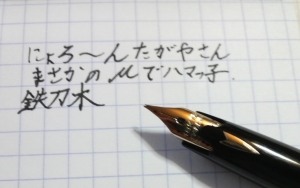 にょろ〜んたがやさん
まさかのMでハマっ子.
鉄刀木